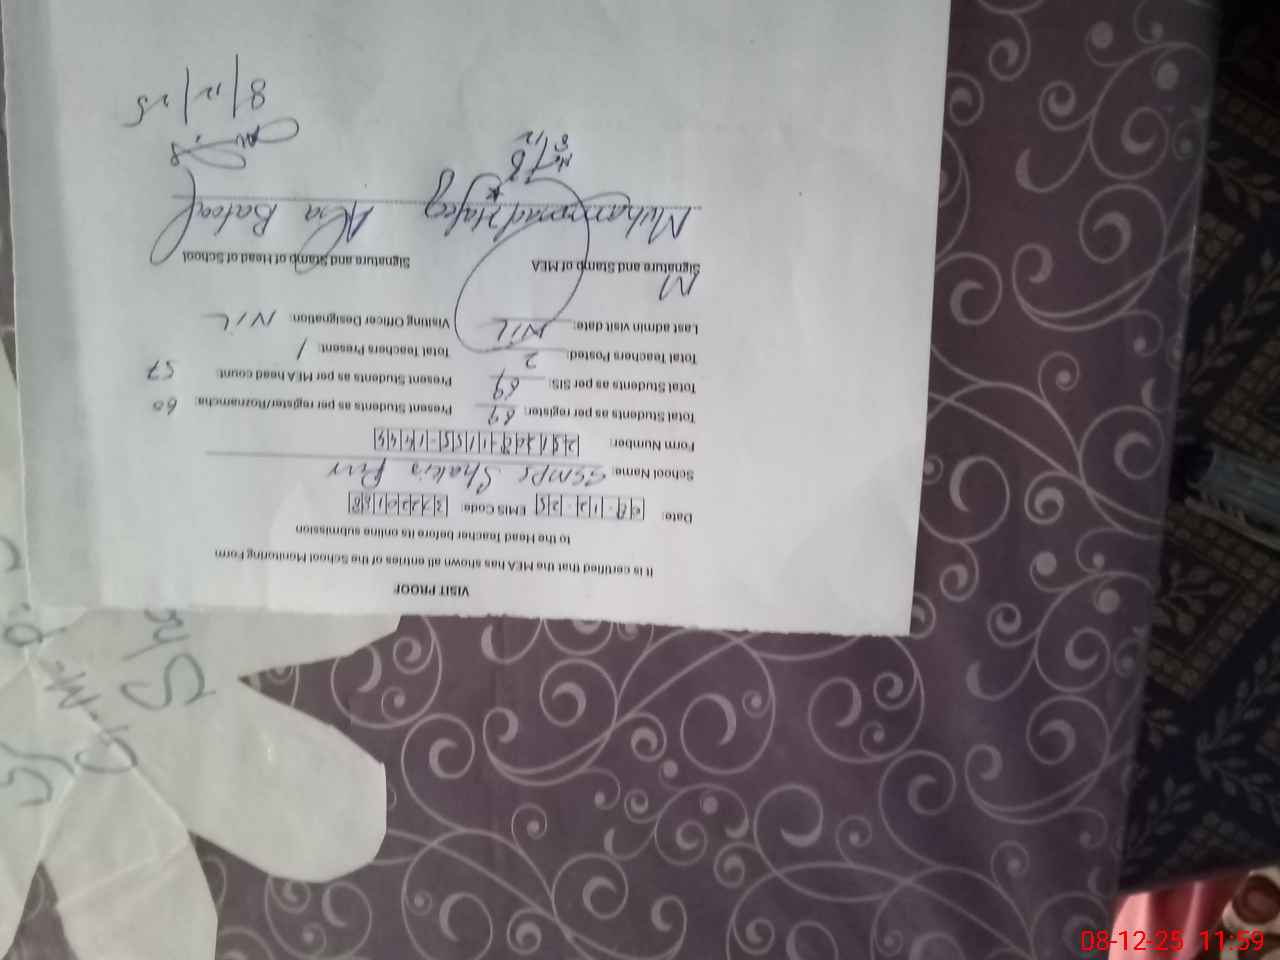 VISIT PROOF
It is certified that the MEA has shown all entries of the School Monitoring Form
to the Head Teacher before its online submission
Date: 08-12-25 EMIS Code: 37220188
School Name: GGMPS Shakir Pur
Form Number:
Total Students as per register: 69 Present Students as per register/Roznamcha: 60
Total Students as per SIS: 69 Present Students as per MEA head count: 57
Total Teachers Posted: 2 Total Teachers Present: 1
Last admin visit date: NIL Visiting Officer Designation: NIL
Signature and Stamp of MEA Signature and Stamp of Head of School
Muhammad Hafeez Batool
8/12/25
08-12-25 11:59